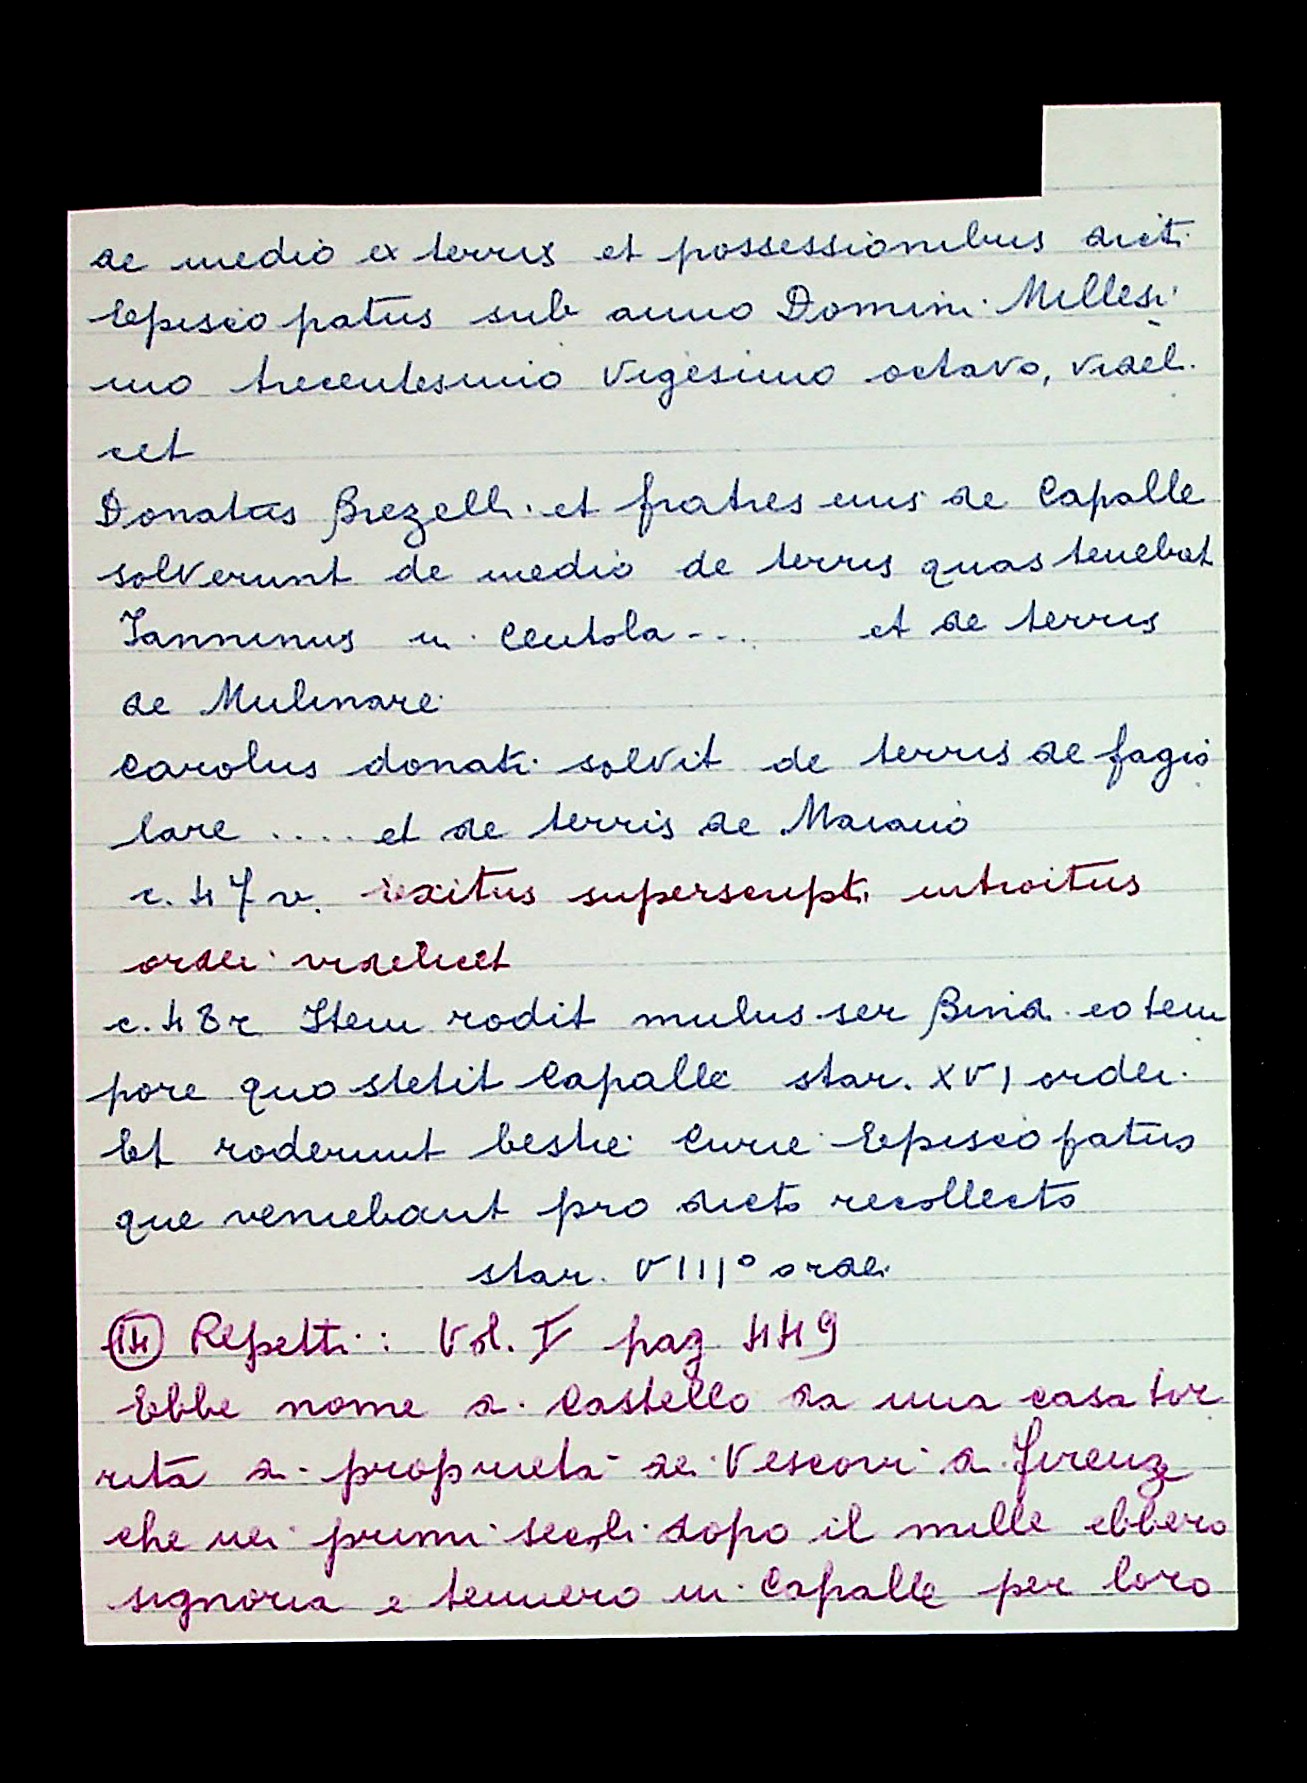 de medio ex terris et possessionibus dicti
Episcopatus sub anno Domini Millesi
mo trecentesimo vigesimo octavo, videli
cet
Donatus Brezelli et fratres eius de Capalle
solverunt de medio de terris quas tenebat
Ianninus in Centola ... et de terris
de Mulinare
Carolus donati solvit de terris de fagio
lare ..... et de terris de Maiano
c. 47 v. exitus superscripti introitus
ordei videlicet
c. 48 r Item rodit mulus ser Bindi eo tem
pore quo stetit Capalle star. XVI ordei
Et roderunt bestie Curie Episcopatus
que veniebant pro dicto recollecto
star. VIII° ordei
(14) Repetti: Vol. I pag 449
Ebbe nome di Castello da una casa tor
rita di proprietà dei Vescovi di Firenze
che nei primi secoli dopo il mille ebbero
signoria e tennero in Capalle per loro